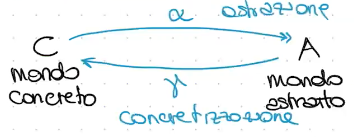 α astrazione
C A
mondo concreto
mondo astratto
γ
concretizzazione